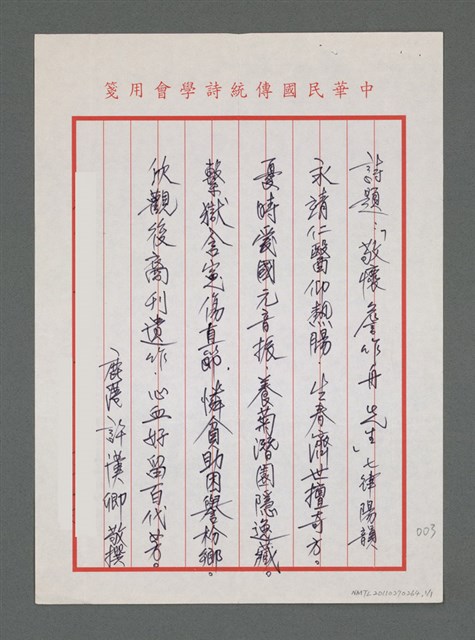 中華民國傳統詩學會用箋
詩題:「敬懷詹作舟先生」七律陽韻
永靖仁醫仰熱腸.生春濟世擅奇方。
憂時愛國元音振.養菊潛園隱逸藏。
繫獄含冤傷直節.憐貧助困譽枌鄉。
欣觀後裔刊遺作.心血好留百代芳。
鹿港 許漢卿 敬撰
003
NMTL20110270264, 1/1